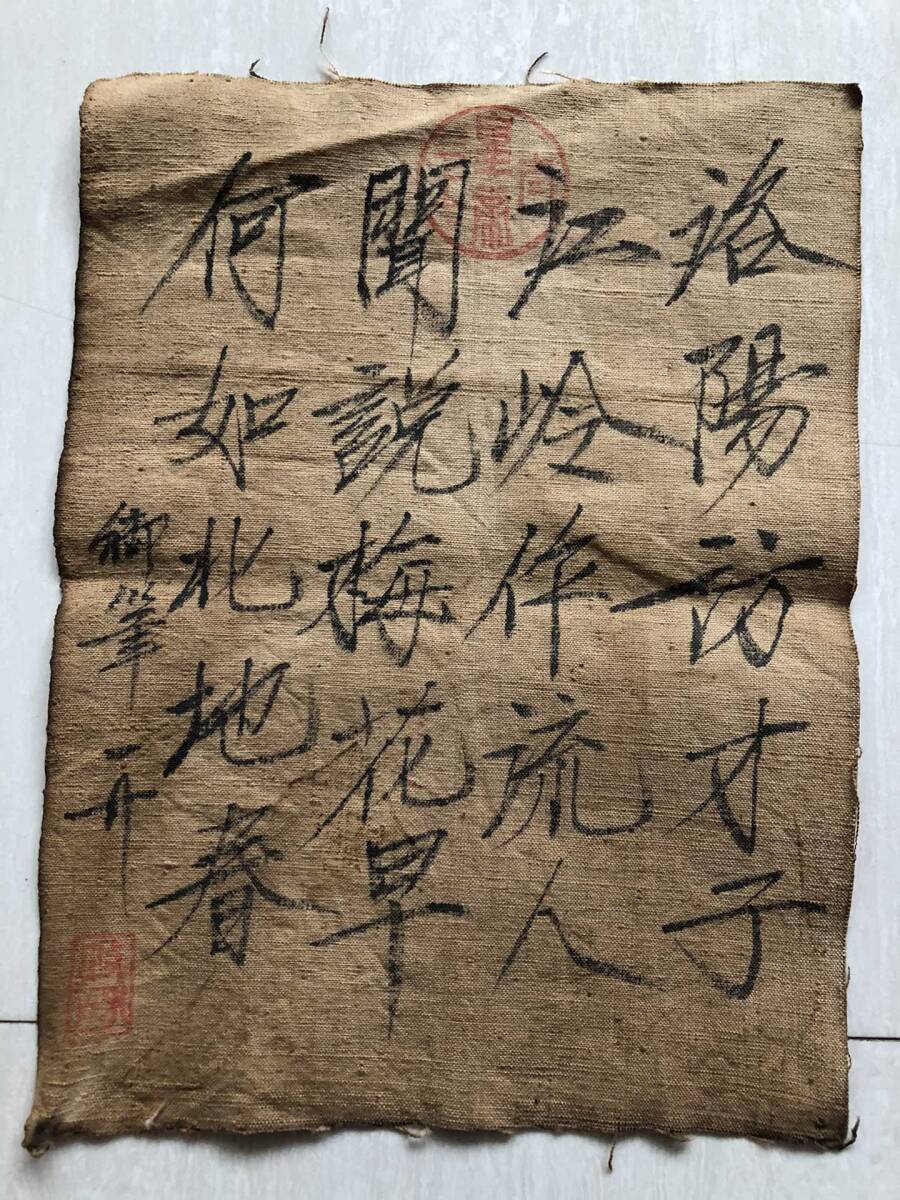 洛陽訪才子
江岭作流人
聞說梅花早
何如北地春
御筆